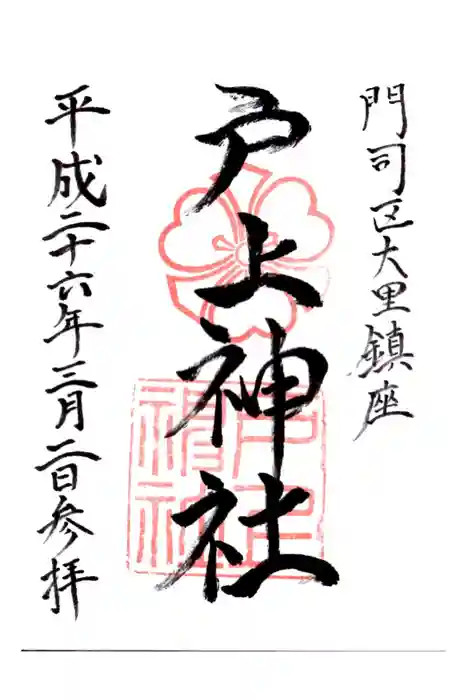 門司区大里鎮座
戸上神社
平成二十六年三月二日参拝